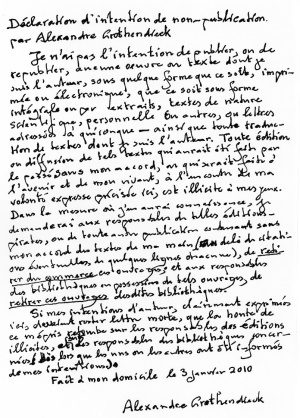 Déclaration d'intention de non-publication
par Alexandre Grothendieck
Je n'ai pas l'intention de publier, ou de
republier, aucune œuvre ou texte dont je
suis l'auteur, sous quelque forme que ce soit, impri-
mée ou électronique, que ce soit sous forme
intégrale ou par extraits, textes de nature
scientifique, personnelle ou autres, ou lettres
adressées à quiconque — ainsi que toute traduc-
tion de textes dont je suis l'auteur. Toute édition
ou diffusion de tels textes qui aurait été faite par
le passé sans mon accord, ou qui serait faite à
l'avenir et de mon vivant, à l'encontre de ma
volonté expresse précisée ici, est illicite à mes yeux.
Dans la mesure où j'en aurai connaissance, je
demanderai aux responsables de telles éditions-
pirates, ou de toute autre publication contenant sans
mon accord des textes de ma main (au delà de citati-
ons éventuelles de quelques lignes chacune), de reti-
rer du commerce ces ouvrages; et aux responsables
des bibliothèques en possession de tels ouvrages, de
retirer ces ouvrages desdites bibliothèques.
Si mes intentions d'auteur, clairement exprimées
ici, devaient rester lettre morte, que la honte de
ce mépris retombe sur les responsables des éditions
illicites, et des responsables des bibliothèques concer-
nées (dès lors que les uns ou les autres ont été informés
de mes intentions).
Fait à mon domicile le 3 janvier 2010
Alexandre Grothendieck